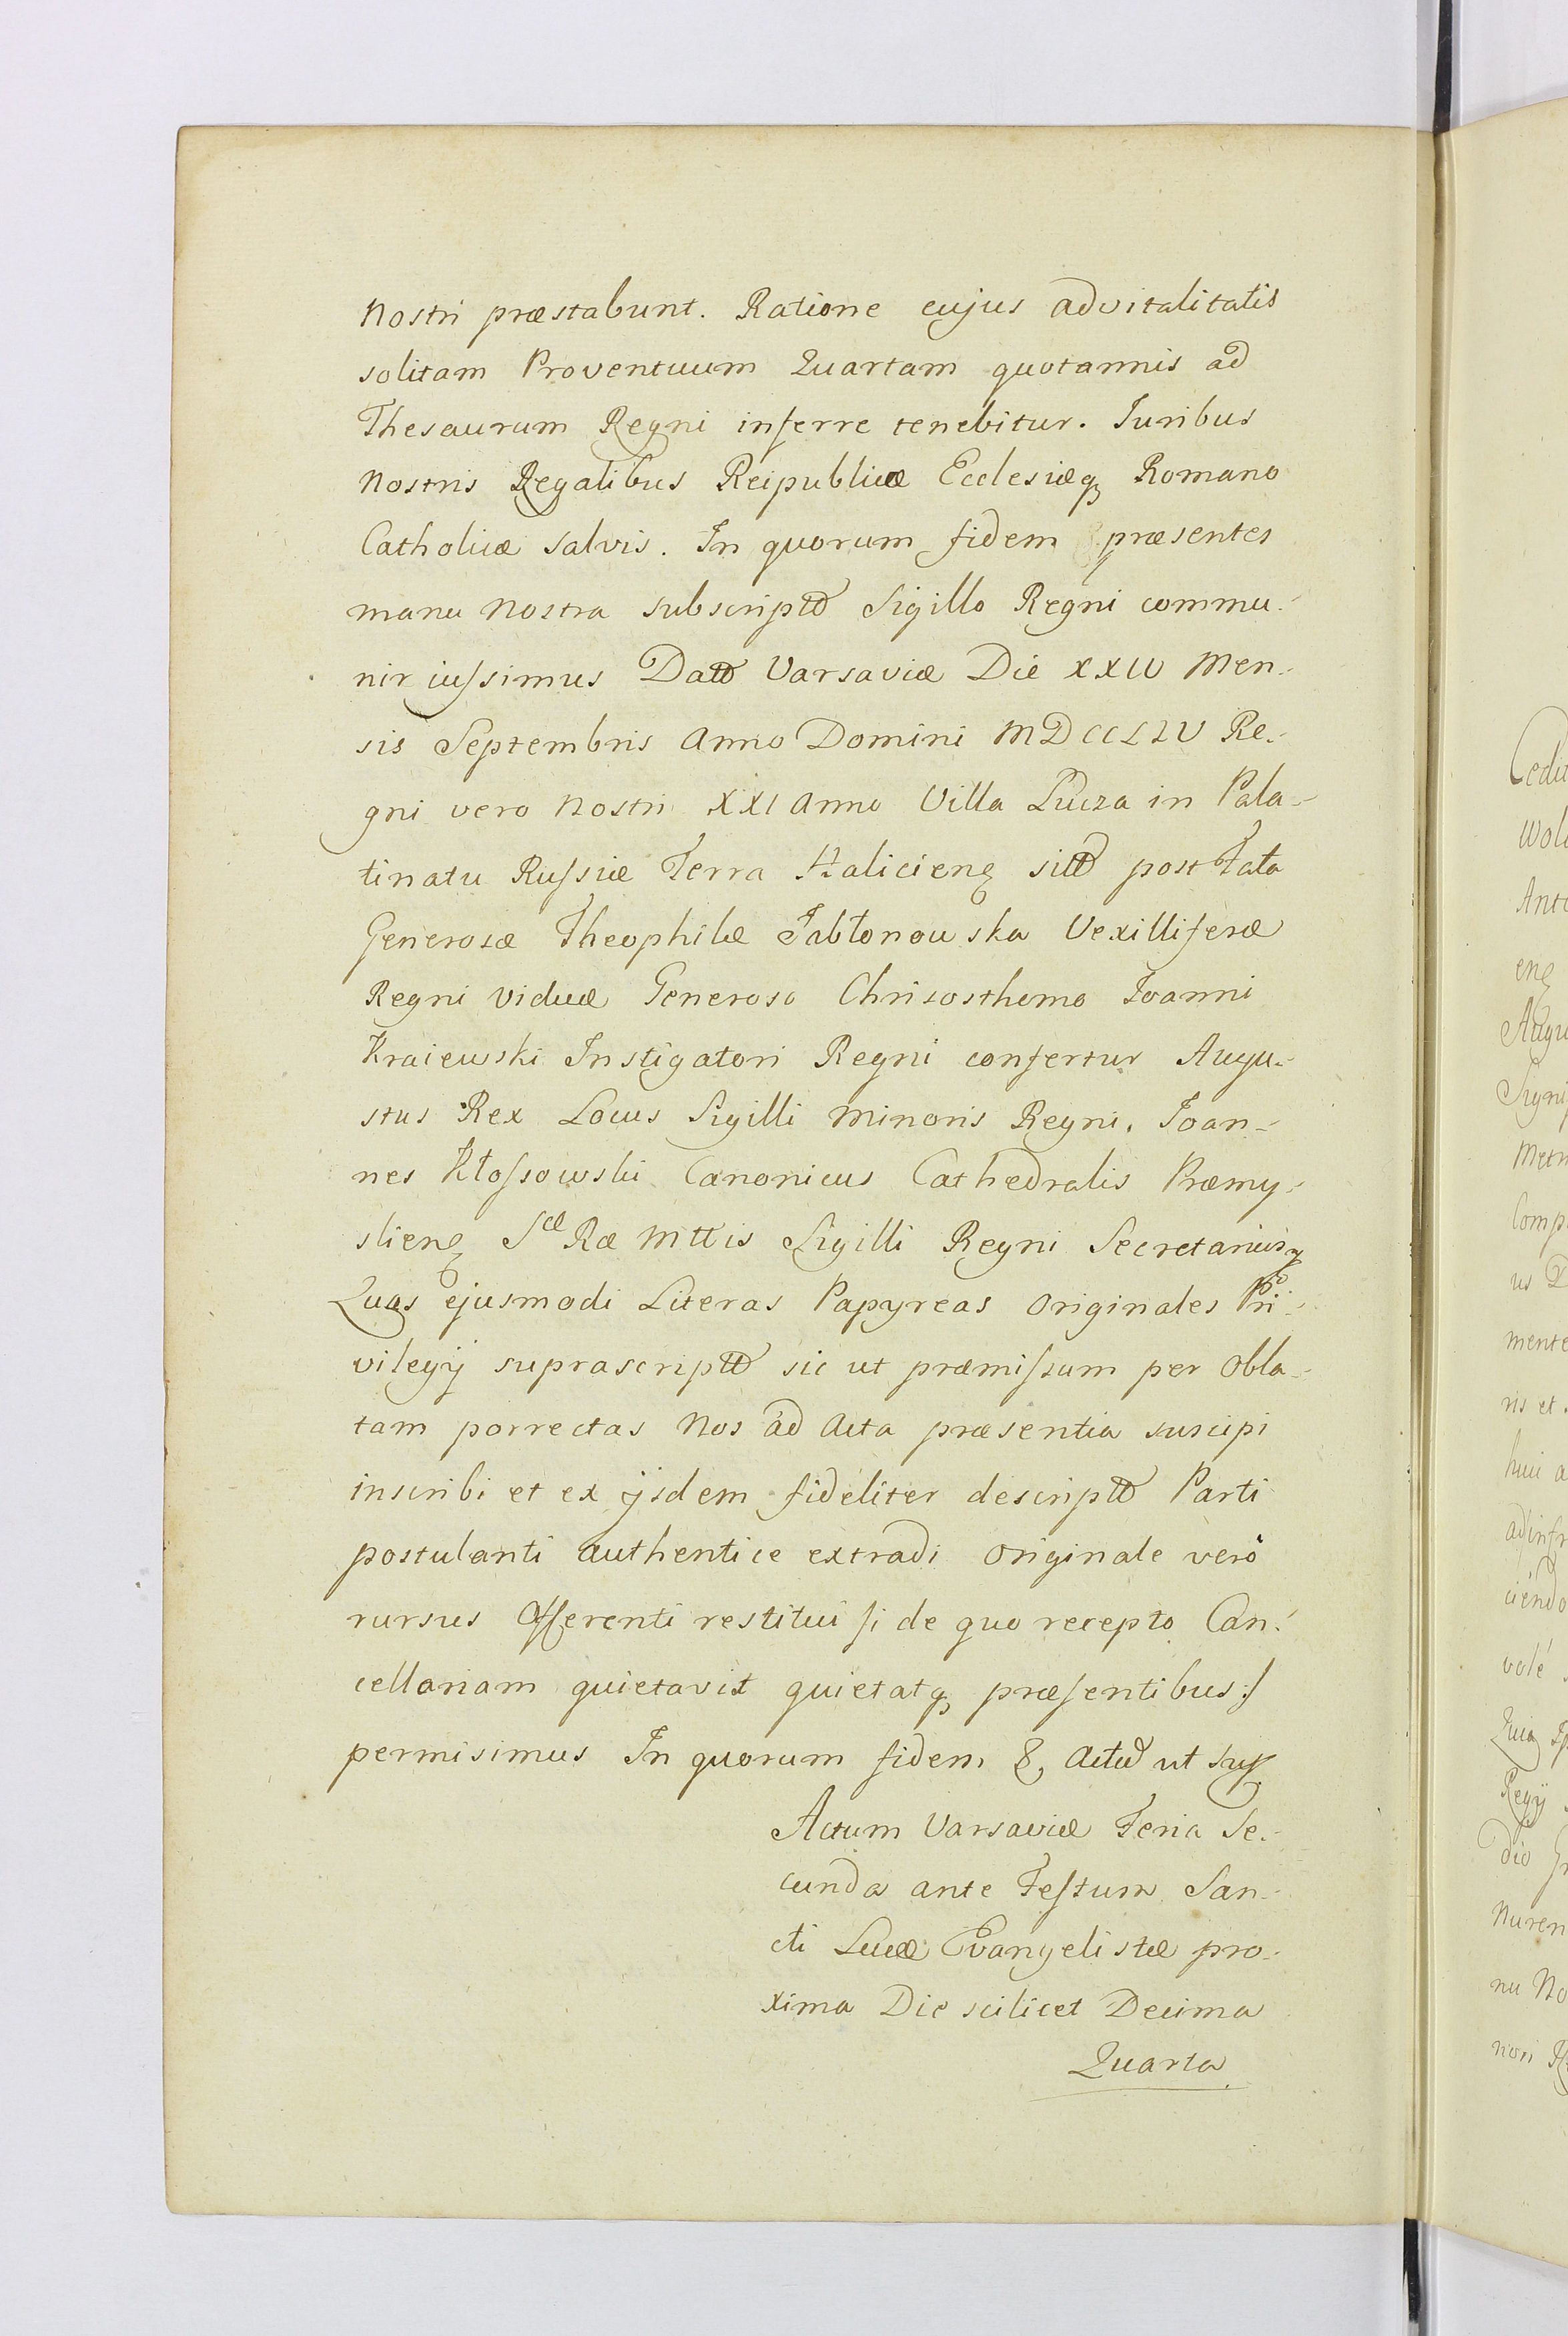 nostri præstabunt. Ratione cujus advitalitatis
solitam Proventuum Quartam quotannis ad
Thesaurum Regni inferre tenebitur. Iuribus
nostris Regalibus Reipublicæ Ecclesiæq Romano
Catholicæ salvis. In quorum fidem præsentes
manu nostra subscriptas Sigillo Regni commu-
nir iussimus Datt Varsaviæ Die XXIV Men-
sis Septembris Anno Domini MDCCLIV Re-
gni vero nostri XXI anno Villa in Pala-
tinatu Russiæ Terra Haliciens sitt post Fata
Generosæ Theophilæ Jabłonowska Vexilliferæ
Regni viduæ Generoso Chrisosthomo Ioanni
Kraiewski Instigatori Regni confertur Augu-
stus Rex Locus Sigilli minoris Regni. Ioan-
nes Kłossowski Canonicus Cathedralis Præmy-
sliens Sæ Ræ Mttis Sigilli Regni Secretarius
Quas ejusmodi Literas Papyreas originales Pri-
vilegij suprascriptt sic ut præmissum per obla-
tam porrectas Nos ad Acta præsentia suscipi
inscribi et ex ijsdem fideliter descriptt Parti
postulanti authentice extradi originale verò
rursus Offerenti restitui si de quo recepto Can-
cellariam quietavit quietatq præsentibus:/
permisimus In quorum fidem & Actud ut sup
Actum Varsaviæ Feria Se-
cunda ante Festum San-
cti Lucæ Evangelistæ pro-
xima Die scilicet Decima
Quarta
Cedit
Wole
Anto
ens
Augu
Signi
Metr
Comp
us
mente
ris et
huic a
ad infr
ciendo
volé
Quia
Regij
dio
Nuren
nu No
nori